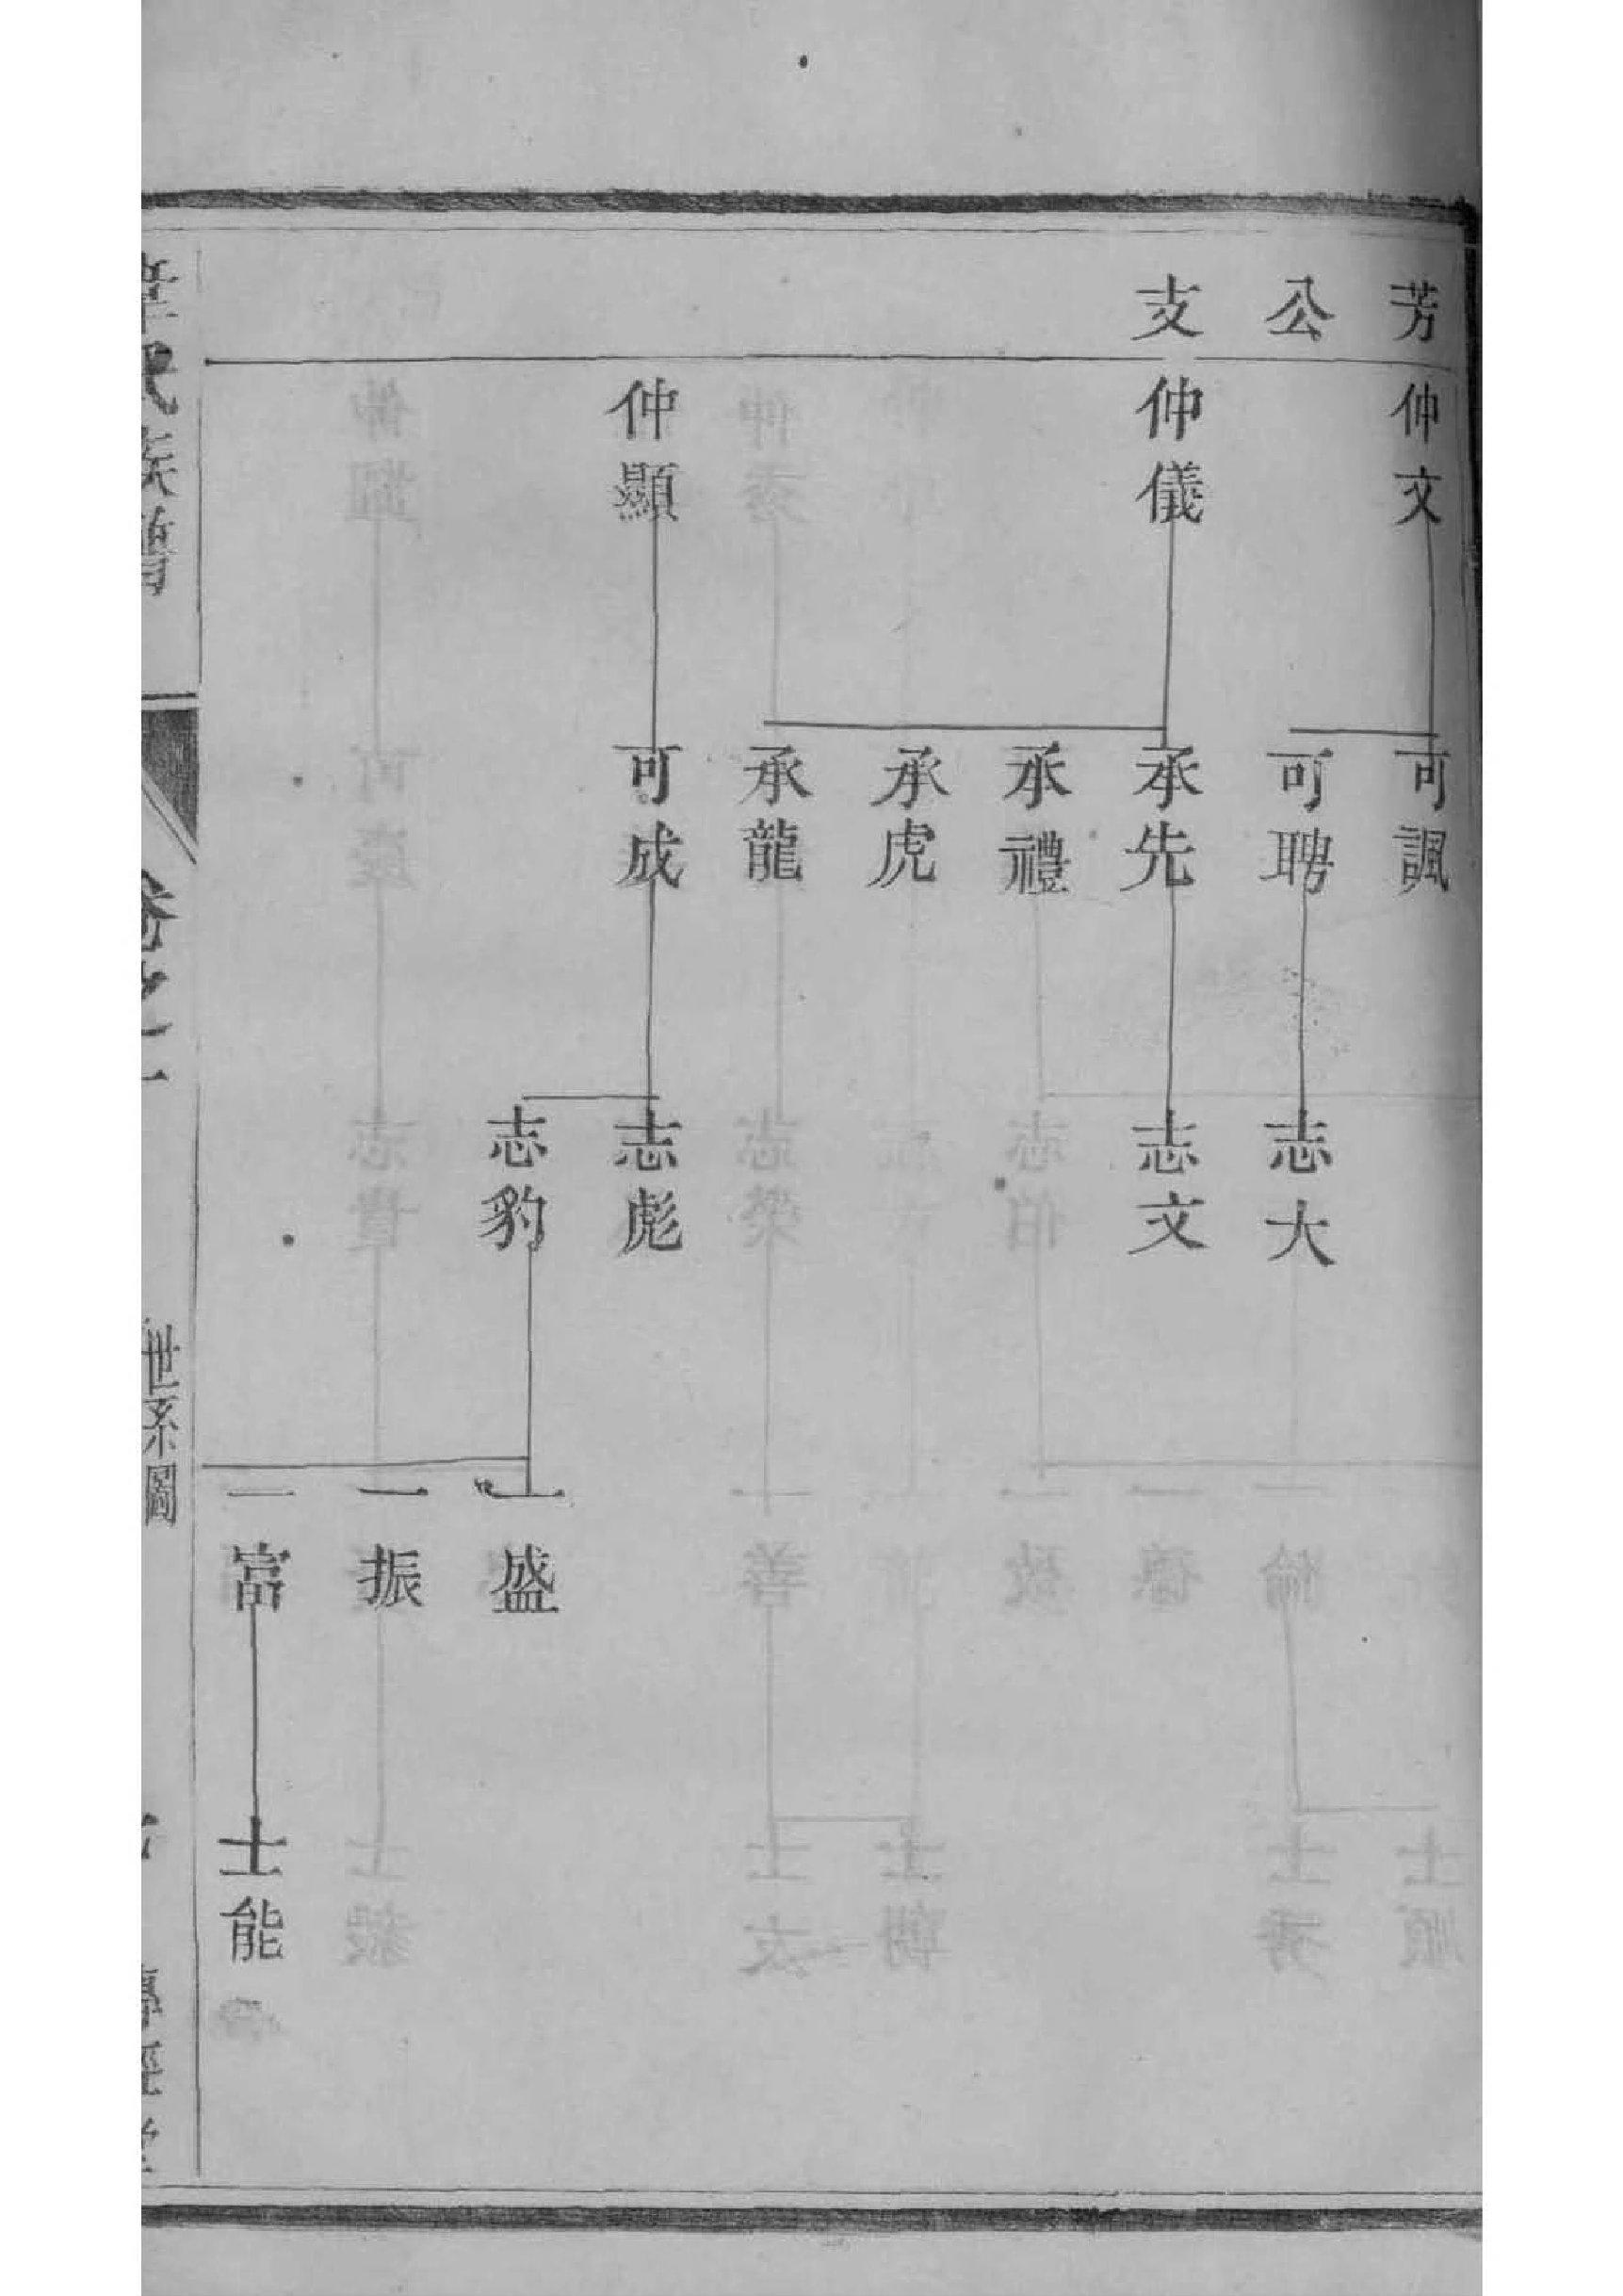 芳公支
仲文
仲儀
仲顯
可諷
可聘
承先
承禮
承虎
承龍
可成
志大
志文
志彪
志豹
一盛
一振
一富
士能
氏族譜
卷之一
世系圖